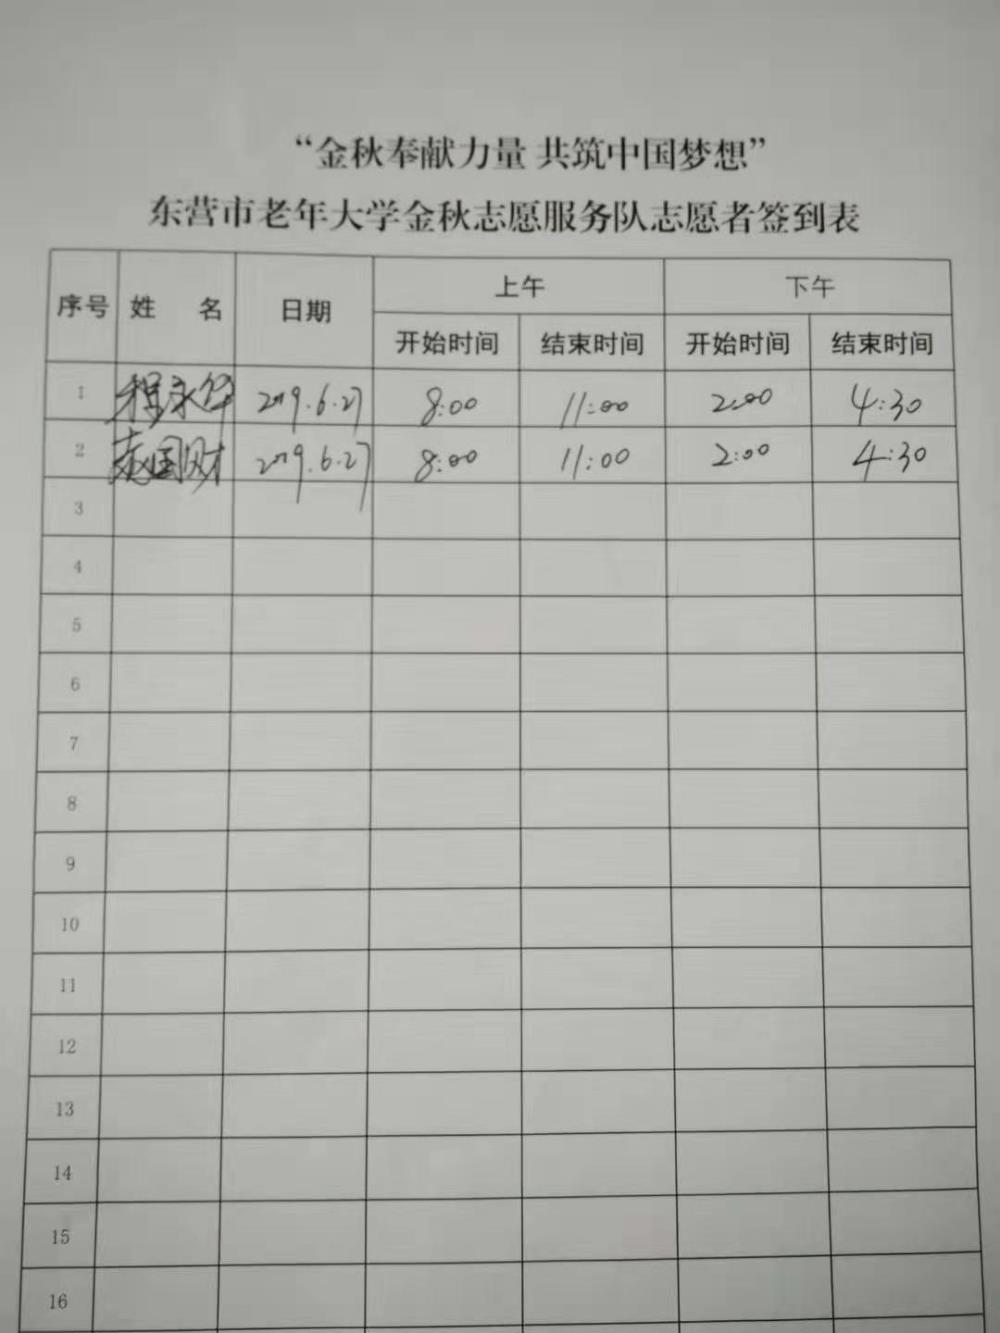 “金秋奉献力量 共筑中国梦想”
东营市老年大学金秋志愿服务队志愿者签到表
序号 姓 名 日期 上午 下午
开始时间 结束时间 开始时间 结束时间
1 程永华 2019.6.27 8:00 11:00 2:00 4:30
2 国财 2019.6.27 8:00 11:00 2:00 4:30
3
4
5
6
7
8
9
10
11
12
13
14
15
16